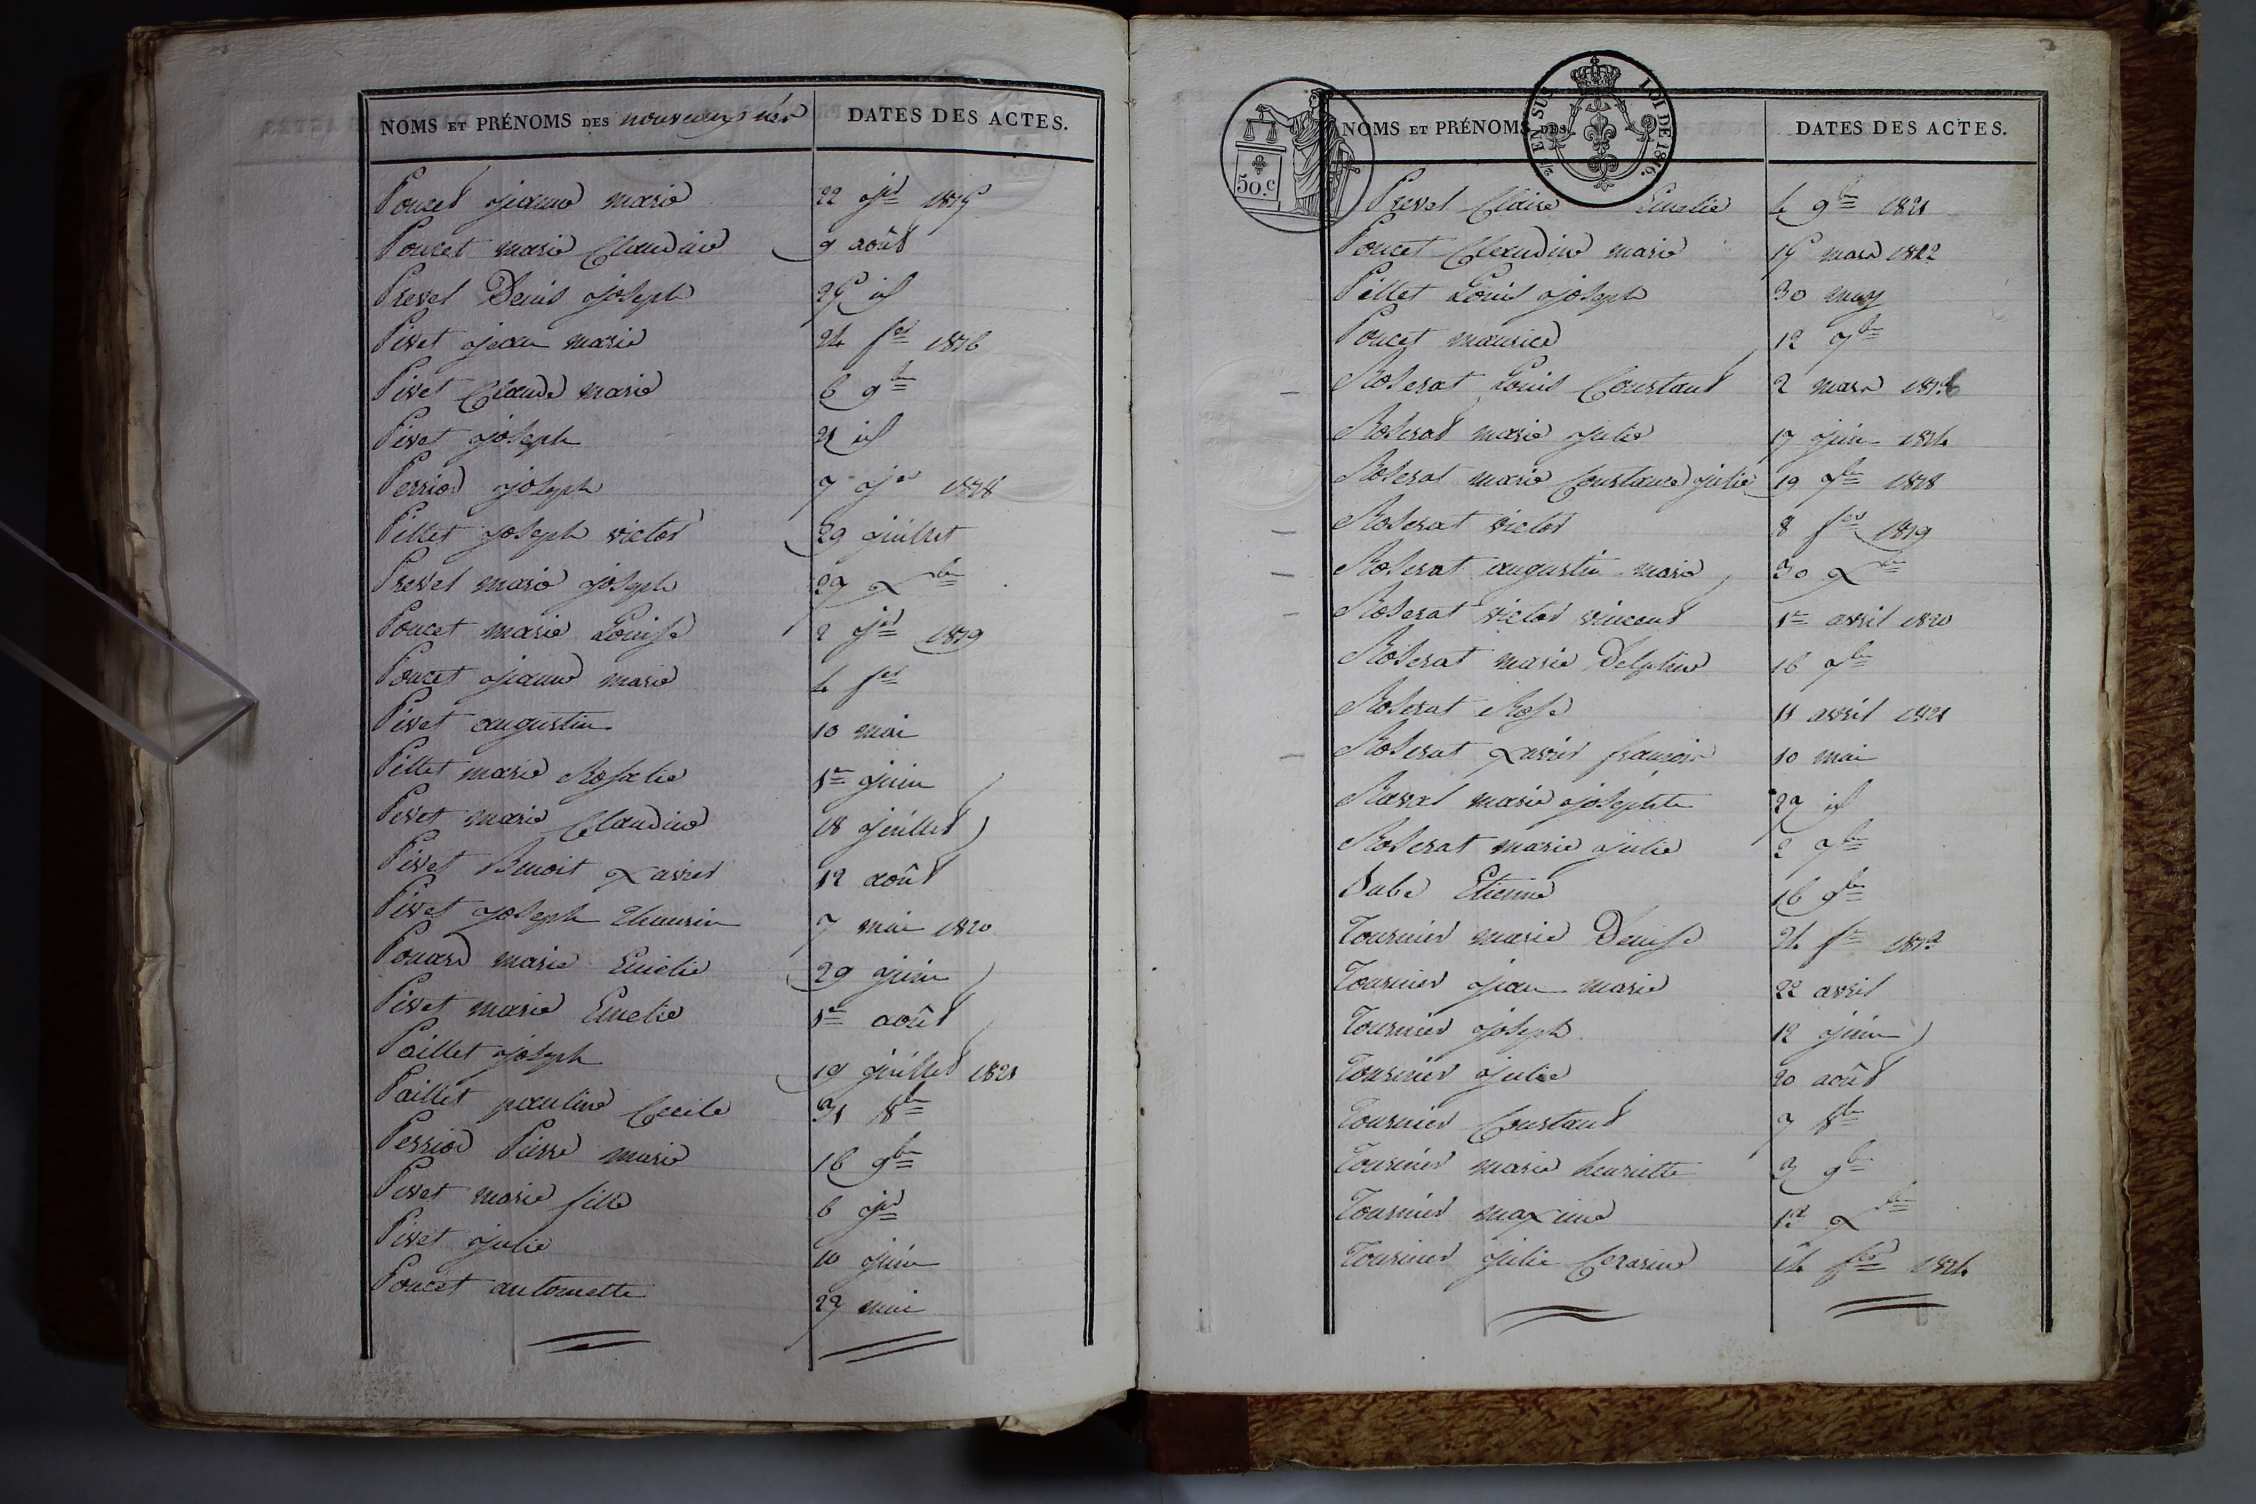 NOMS ET PRÉNOMS DES nouveaux nés
DATES DES ACTES.
Poncet jeanne marie 22 jer 1815
Poncet marie Claudine 9 août
Prevel Denis joseph 25 id
Pivet jean marie 24 fer 1816
Pivet Claude marie 6 9bre
Pivet joseph 21 id
Perriod joseph 7 jer 1818
Pillet joseph victor 29 juillet
Prevel marie joseph 27 Xbre
Poncet marie Louise 2 jer 1819
Poncet jeanne marie 4 fer
Pivet augustin 10 mai
Pillet marie Rosalie 1er juin
Pivet marie Claudine 18 juillet
Pivet Benoit Xavier 12 août
Pivet joseph 7 mai 1820
Ponard marie Emelie 29 juin
Pivet marie Emelie 1er août
Paillet joseph 19 juillet 1821
Paillet pauline Cecile 31 8bre
Perriod Pierre marie 16 9bre
Pivet marie fille 6 jer
Pivet julie 10 juin
Poncet antoinette 27 mai
50.c
EN SUS
LOI DE 1816.
NOMS ET PRÉNOMS DES
DATES DES ACTES.
Prevel Claire Emelie 4 9bre 1821
Poncet Claudine marie 15 mars 1822
Pillet Louis joseph 30 may
Poncet maurice 12 7bre
Roserat Louis Constant 2 mars
Roserat marie julie 17 juin 1814
Roserat marie Constance julie 19 7bre 1818
Roserat victor 8 fer 1819
Roserat augustin marie 30 Xbre
Roserat victor vincent 1er avril 1820
Roserat marie Delphine 16 7bre
Roserat Rose 11 avril 1821
Roserat Xavier francois 10 mai
Raval marie josephte 27 id
Roserat marie julie 2 7bre
Etienne 16 9bre
Tournier marie Denise 24 fer 1813
Tournier jean marie 22 avril
Tournier joseph 12 juin
Tournier julie 20 août
Tournier Constant 7 8bre
Tournier marie henriette 3 9bre
Tournier maxime 12 Xbre
Tournier julie 14 fer 1814